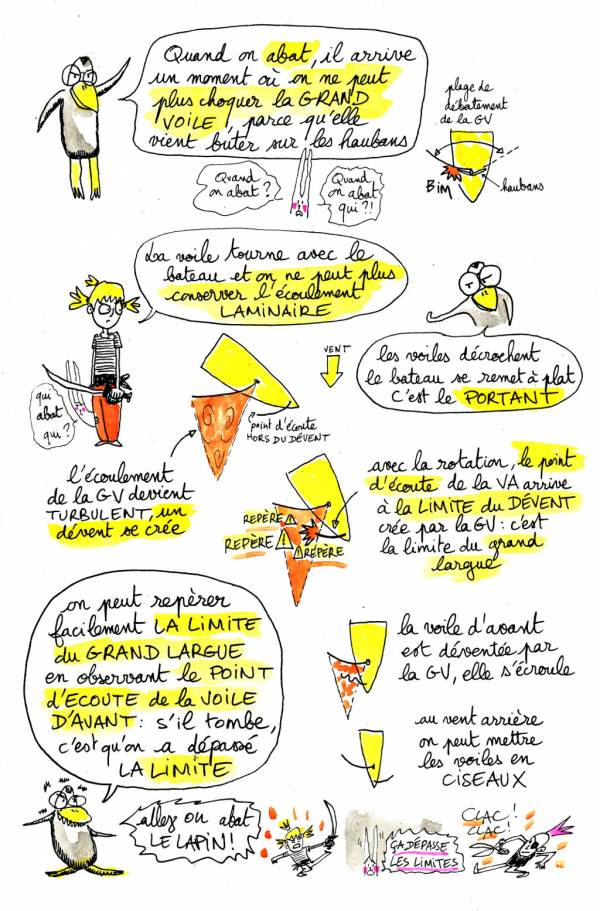 Quand on abat, il arrive
un moment où on ne peut
plus choquer la GRAND
VOILE, parce qu'elle
vient buter sur les haubans
plage de
débatement
de la GV
BIM
haubans
Quand
on abat ?
Quand
on abat
qui ?!
La voile tourne avec le
bateau et on ne peut plus
conserver l'écoulement
LAMINAIRE
qui
abat
qui ?
les voiles décrochent
le bateau se remet à plat
C'est le PORTANT
VENT
point d'écoute
HORS DU DÉVENT
l'écoulement
de la GV devient
TURBULENT, un
dévent se crée
REPÈRE
REPÈRE
REPÈRE
avec la rotation, le point
d'écoute de la VA arrive
à la LIMITE du DÉVENT
crée par la GV : c'est
la limite du grand
largue
on peut repèrer
facilement LA LIMITE
du GRAND LARGUE
en observant le POINT
D'ECOUTE de la VOILE
D'AVANT : s'il tombe,
c'est qu'on a dépassé
LA LIMITE
la voile d'avant
est déventée par
la GV, elle s'écroule
au vent arrière
on peut mettre
les voiles en
CISEAUX
allez on abat
LE LAPIN !
ÇA DÉPASSE
LES LIMITES
CLAC !
CLAC !